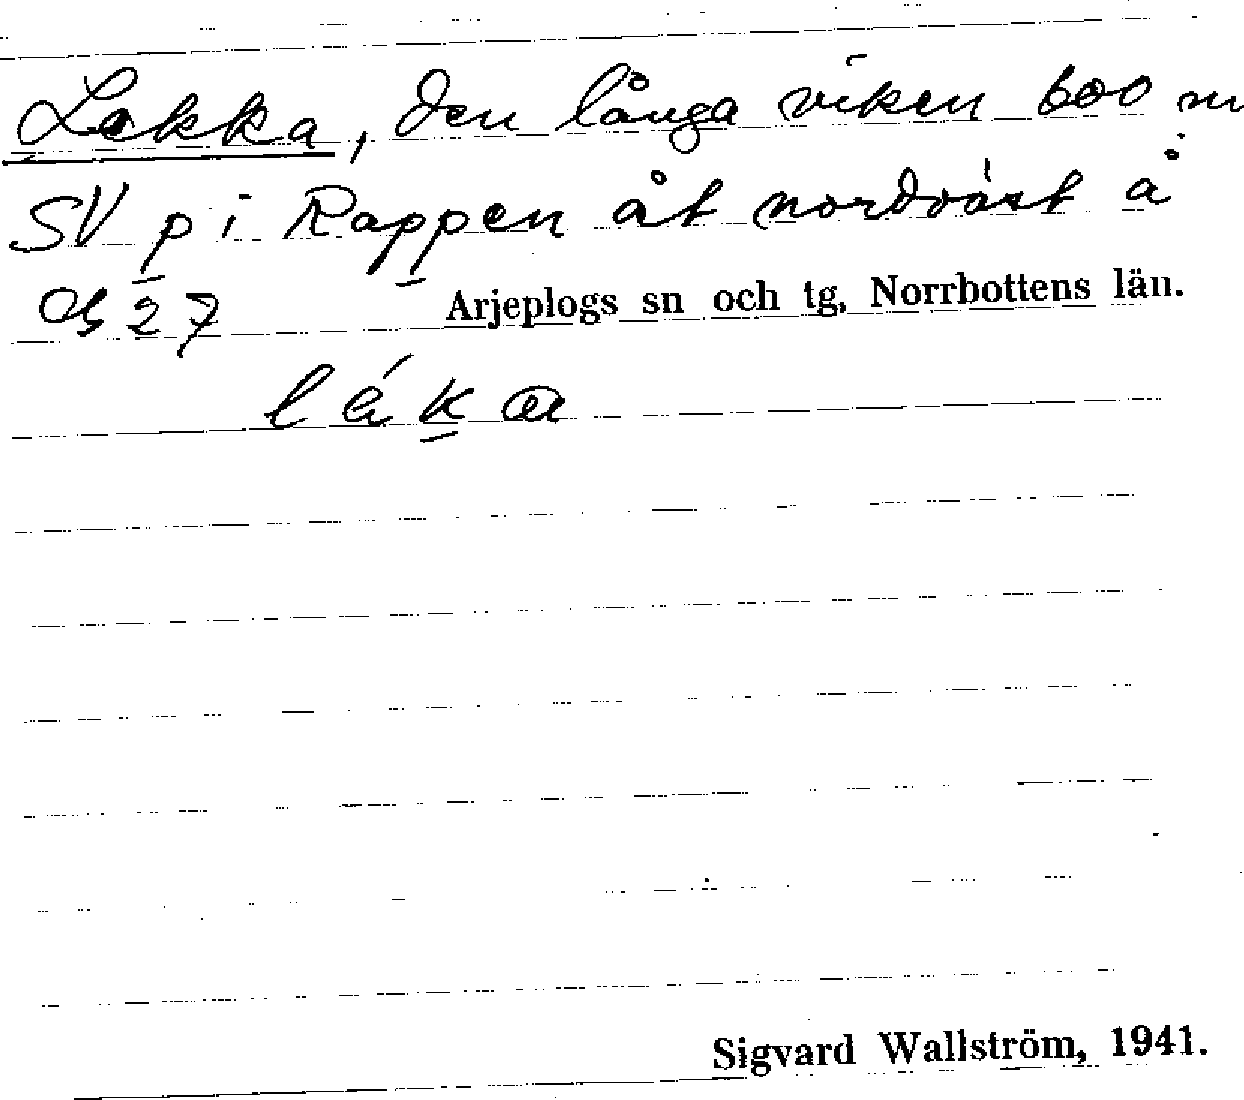 Lekka, den långa viken 600 m
SV p i Rappen åt nordväst å
27
Arjeplogs sn och tg, Norrbottens län.
Sigvard Wallström, 1941.